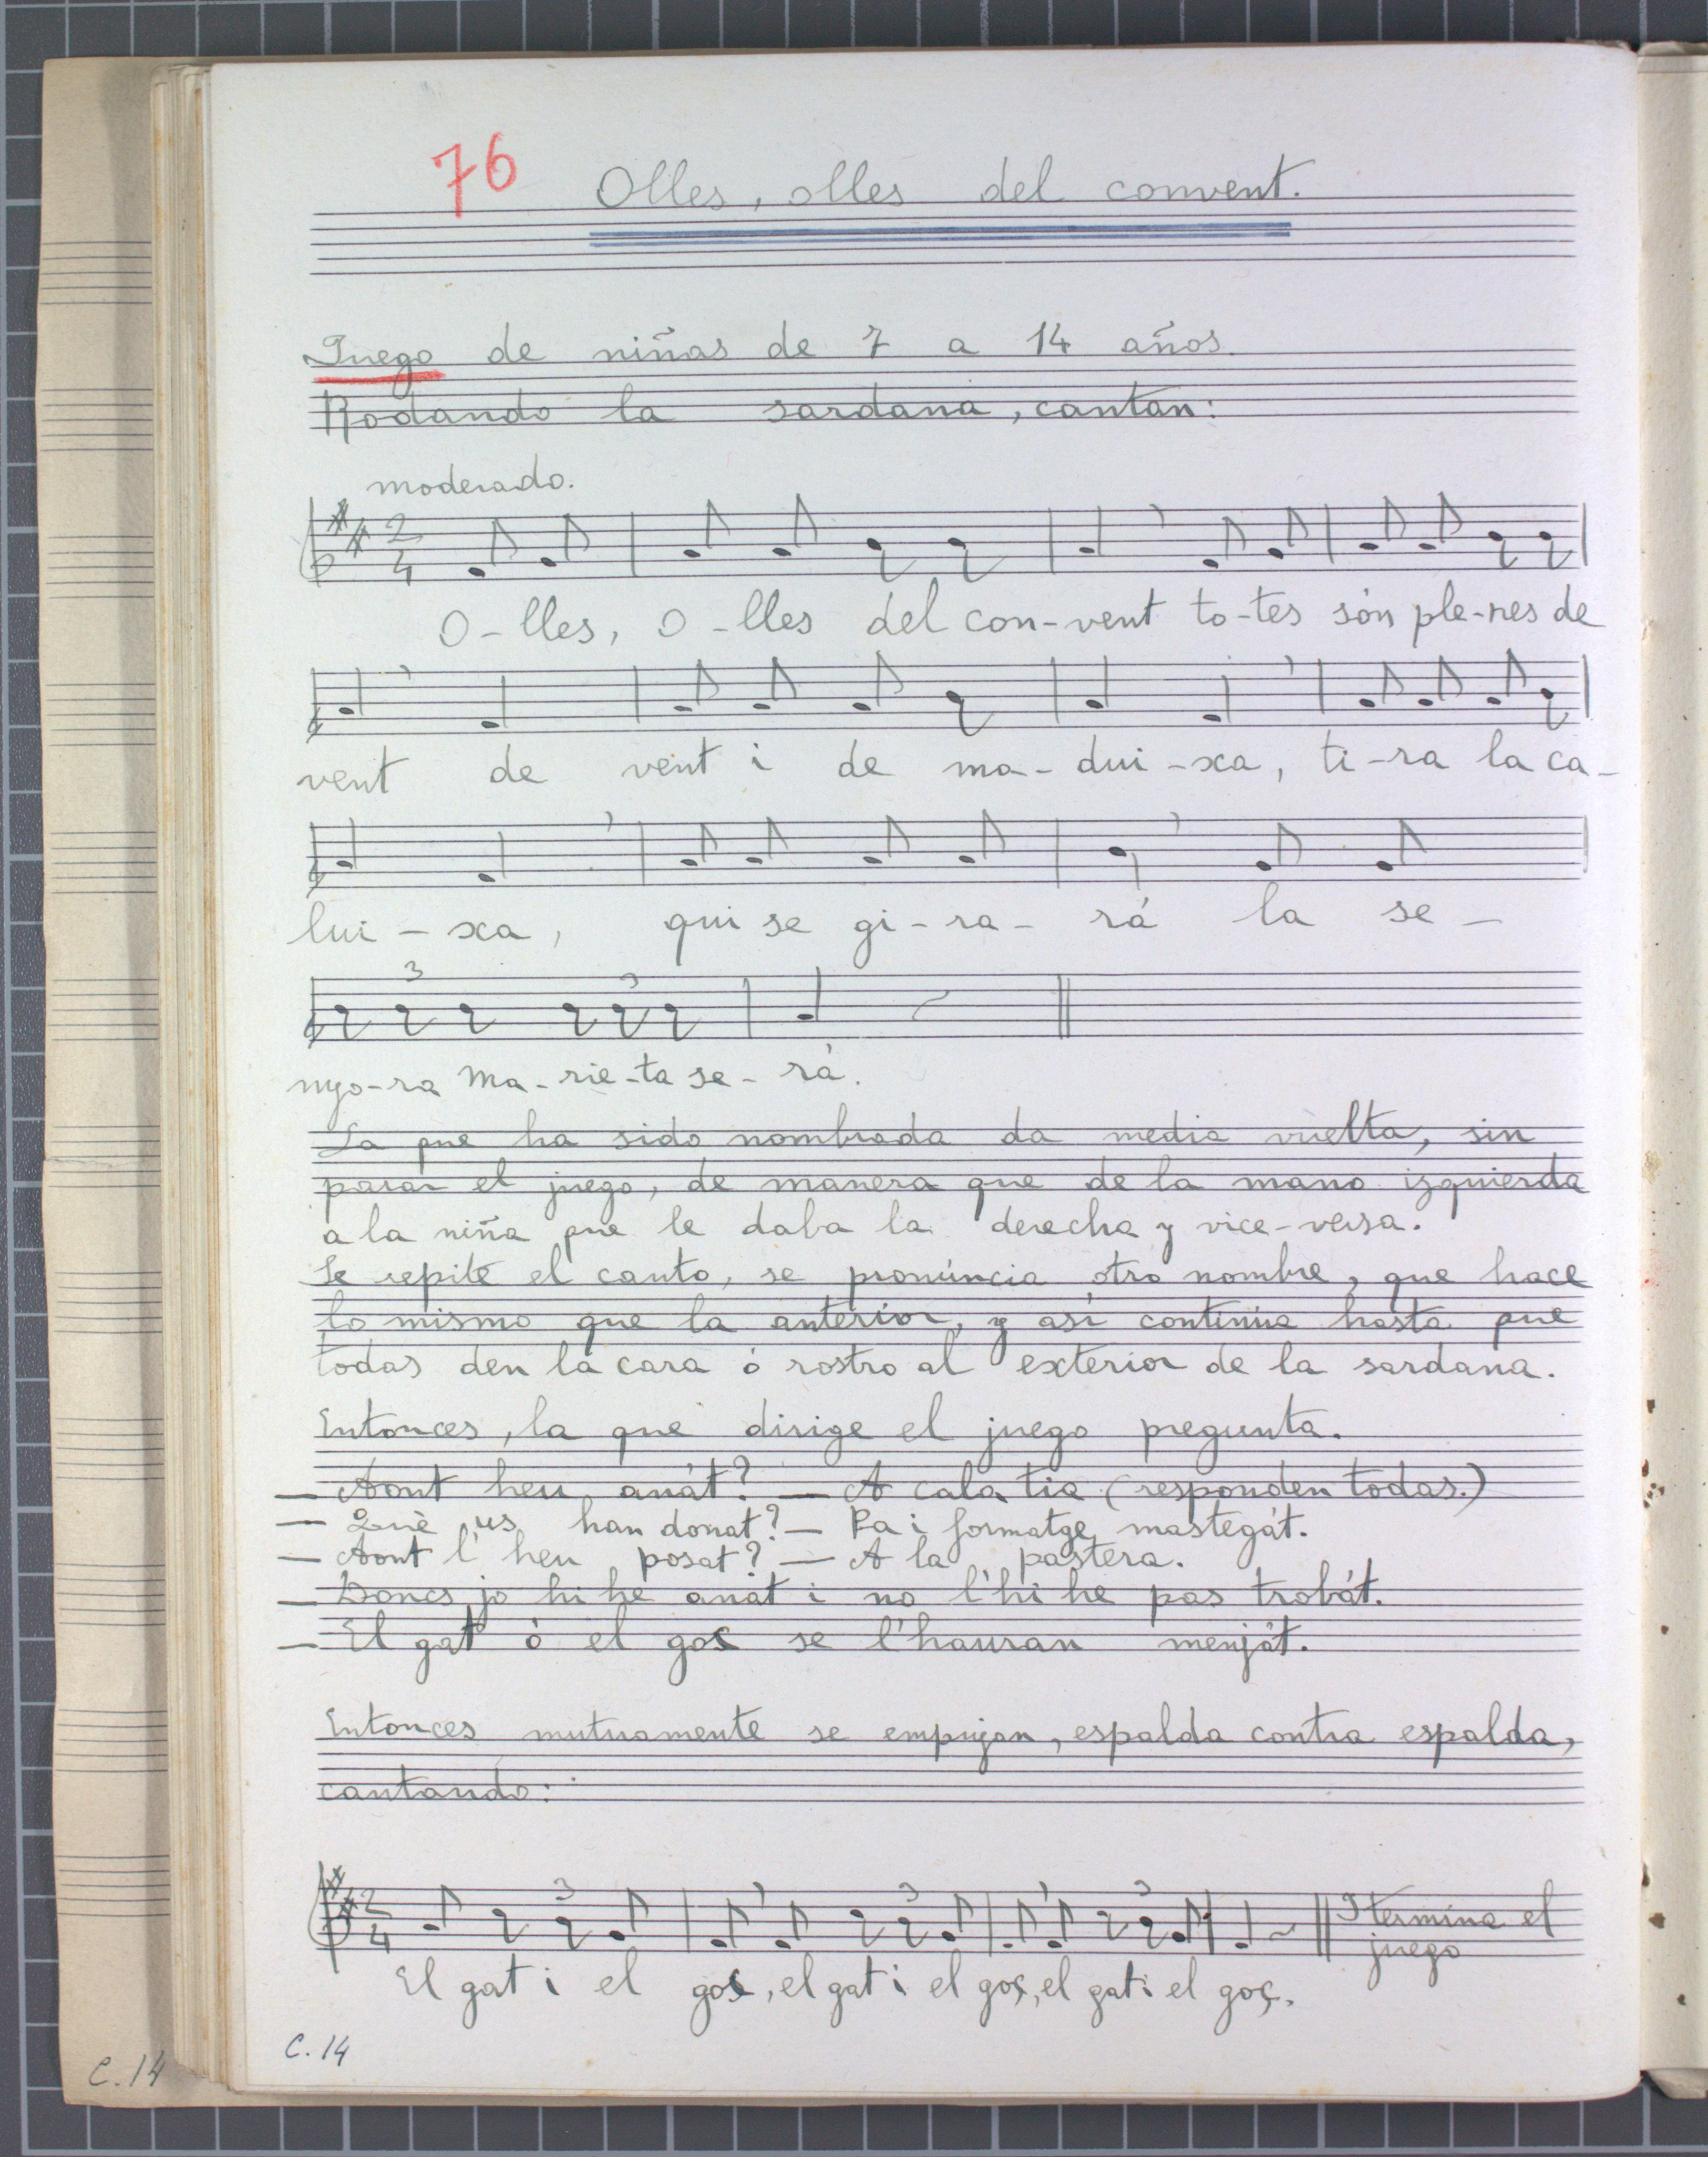 76
Olles, olles del convent.
Juego de niñas de 7 a 14 años.
Rodando la sardana, cantan:
moderado.
2
4
O-lles, O-lles del con-vent to-tes són ple-nes de
vent de vent i de ma-dui-xa, ti-ra la ca-
lui-xa, qui se gi-ra-rá la se-
3 3
nyo-ra Ma-rie-ta se-rá.
La que ha sido nombrada da media vuelta, sin
parar el juego, de manera que de la mano izquierda
a la niña que le daba la derecha y vice-versa.
Se repite el canto, se pronúncia otro nombre, que hace
lo mismo que la anterior, y así continúa hasta que
todas den la cara ó rostro al exterior de la sardana.
Entonces, la que dirige el juego pregunta.
— Aont heu anát? — A cala tia (responden todas.)
— Què us han donat? — Pa i formatge mastegát.
— Aont l'heu posat? — A la pastera.
— Doncs jo hi he anát i no l'hi he pas trobát.
— El gat ó el gos se l'hauran menját.
Entonces mutuamente se empujan, espalda contra espalda,
cantando:
2
4
3 3 3
I termina el
juego
El gat i el gos, el gat i el goç, el gat i el goç.
C. 14
C. 14